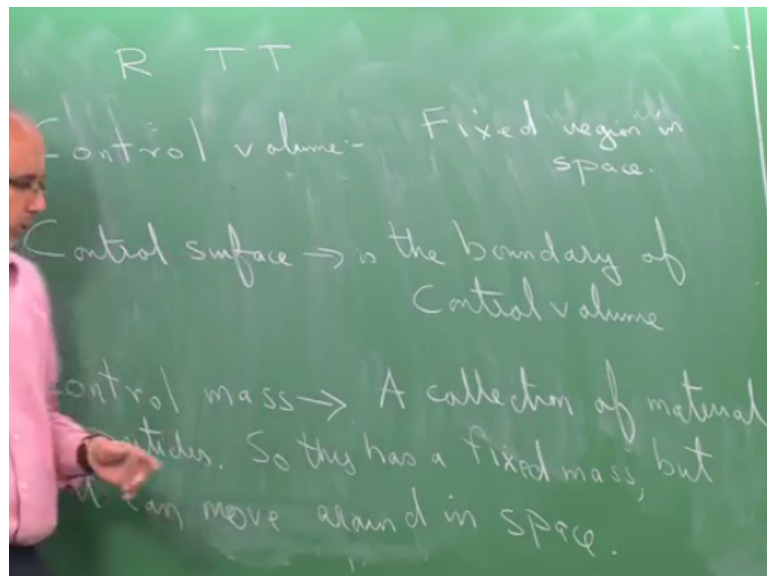 R T T
Control volume:- Fixed region in
space.
Control surface → is the boundary of
Control volume
control mass → A collection of material
So this has a fixed mass, but
it can move around in space.